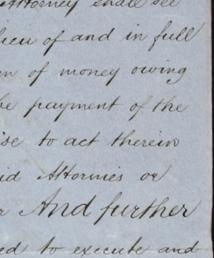 Attorney shall see
lieu of and in full
of money owing
payment of the
to act therein
Attornies or
And further
to execute and